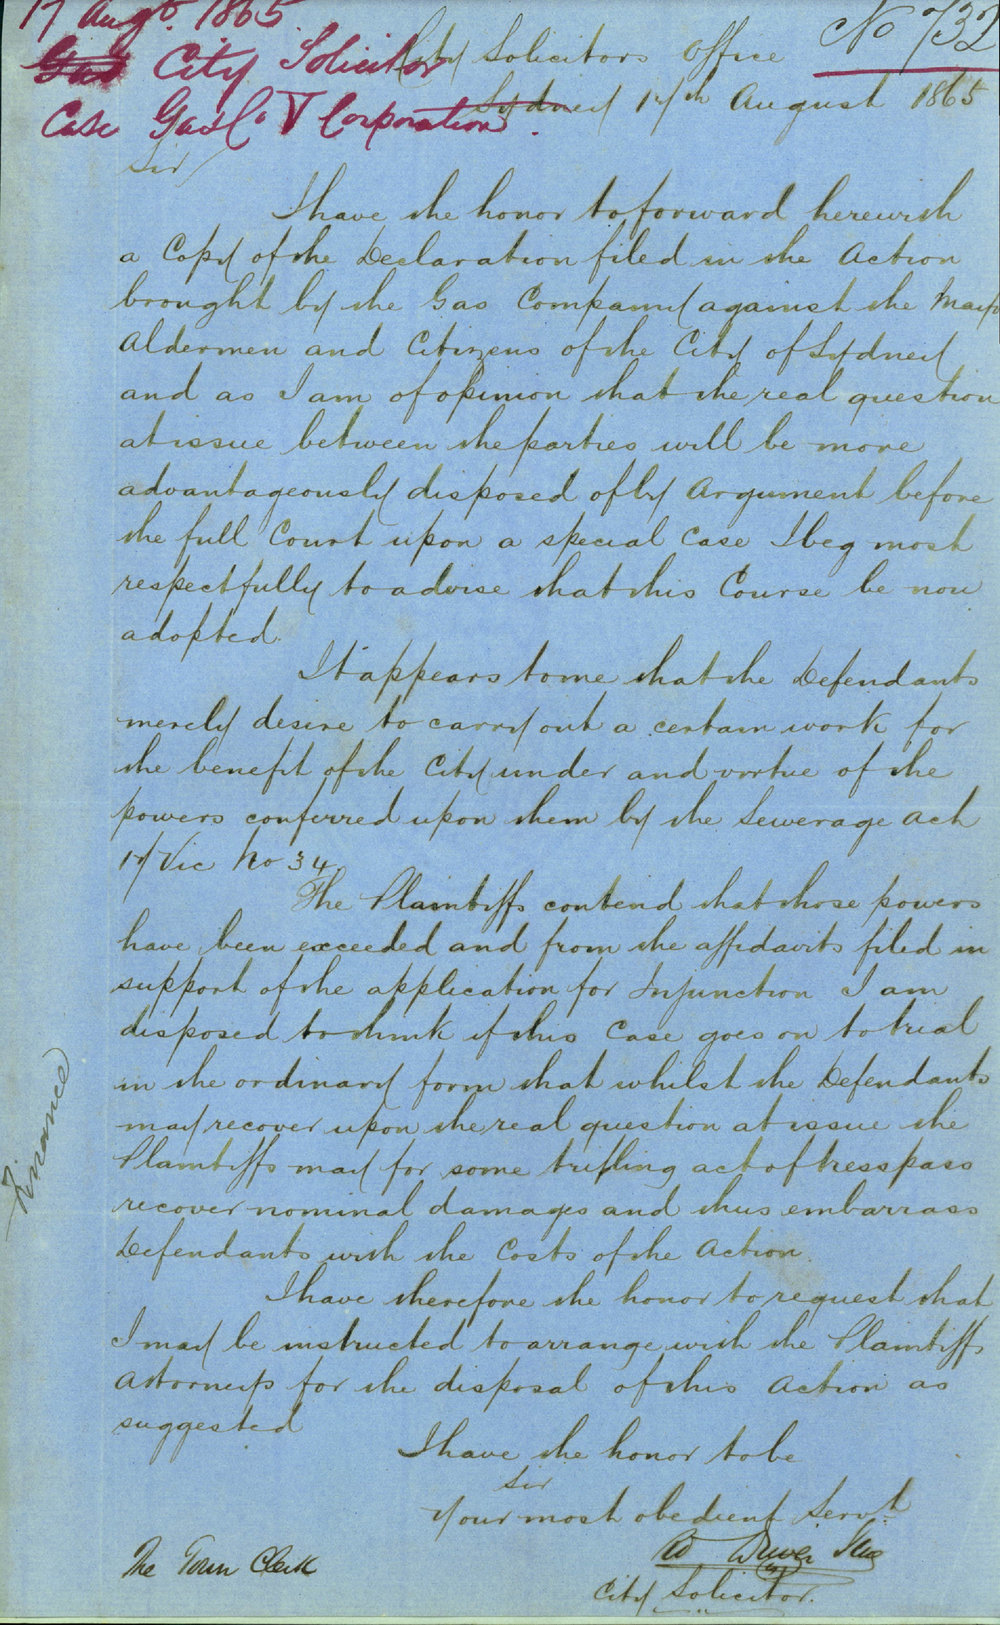 17 Augt. 1865
No 732
Gas City Solicitor
City Solicitors Office
Case Gas Co V Corporation.
Sydney 17th August 1865
Sir
I have the honor to forward herewith
a Copy of the Declaration filed in the Action
brought by the Gas Company against the Mayor
Aldermen and Citizens of the City of Sydney
and as I am of opinion that the real question
at issue between the parties will be more
advantageously disposed of by Argument before
the full Court upon a special Case I beg most
respectfully to advise that this Course be now
adopted.
It appears to me that the Defendants
merely desire to carry out a certain work for
the benefit of the City under and virtue of the
powers conferred upon them by the Sewerage Act
17 Vic No 34.
The Plaintiffs contend that those powers
have been exceeded and from the affidavits filed in
support of the application for Injunction I am
disposed to think if this Case goes on to trial
in the ordinary form that whilst the Defendants
may recover upon the real question at issue the
Plaintiffs may for some trifling act of tresspass
recover nominal damages and thus embarrass
Defendants with the Costs of the Action.
Finance
I have therefore the honor to request that
I may be instructed to arrange with the Plaintiffs
Attorneys for the disposal of this Action as
suggested
I have the honor to be
Sir
Your most obedient Servt
W Driver
City Solicitor.
The Town Clerk